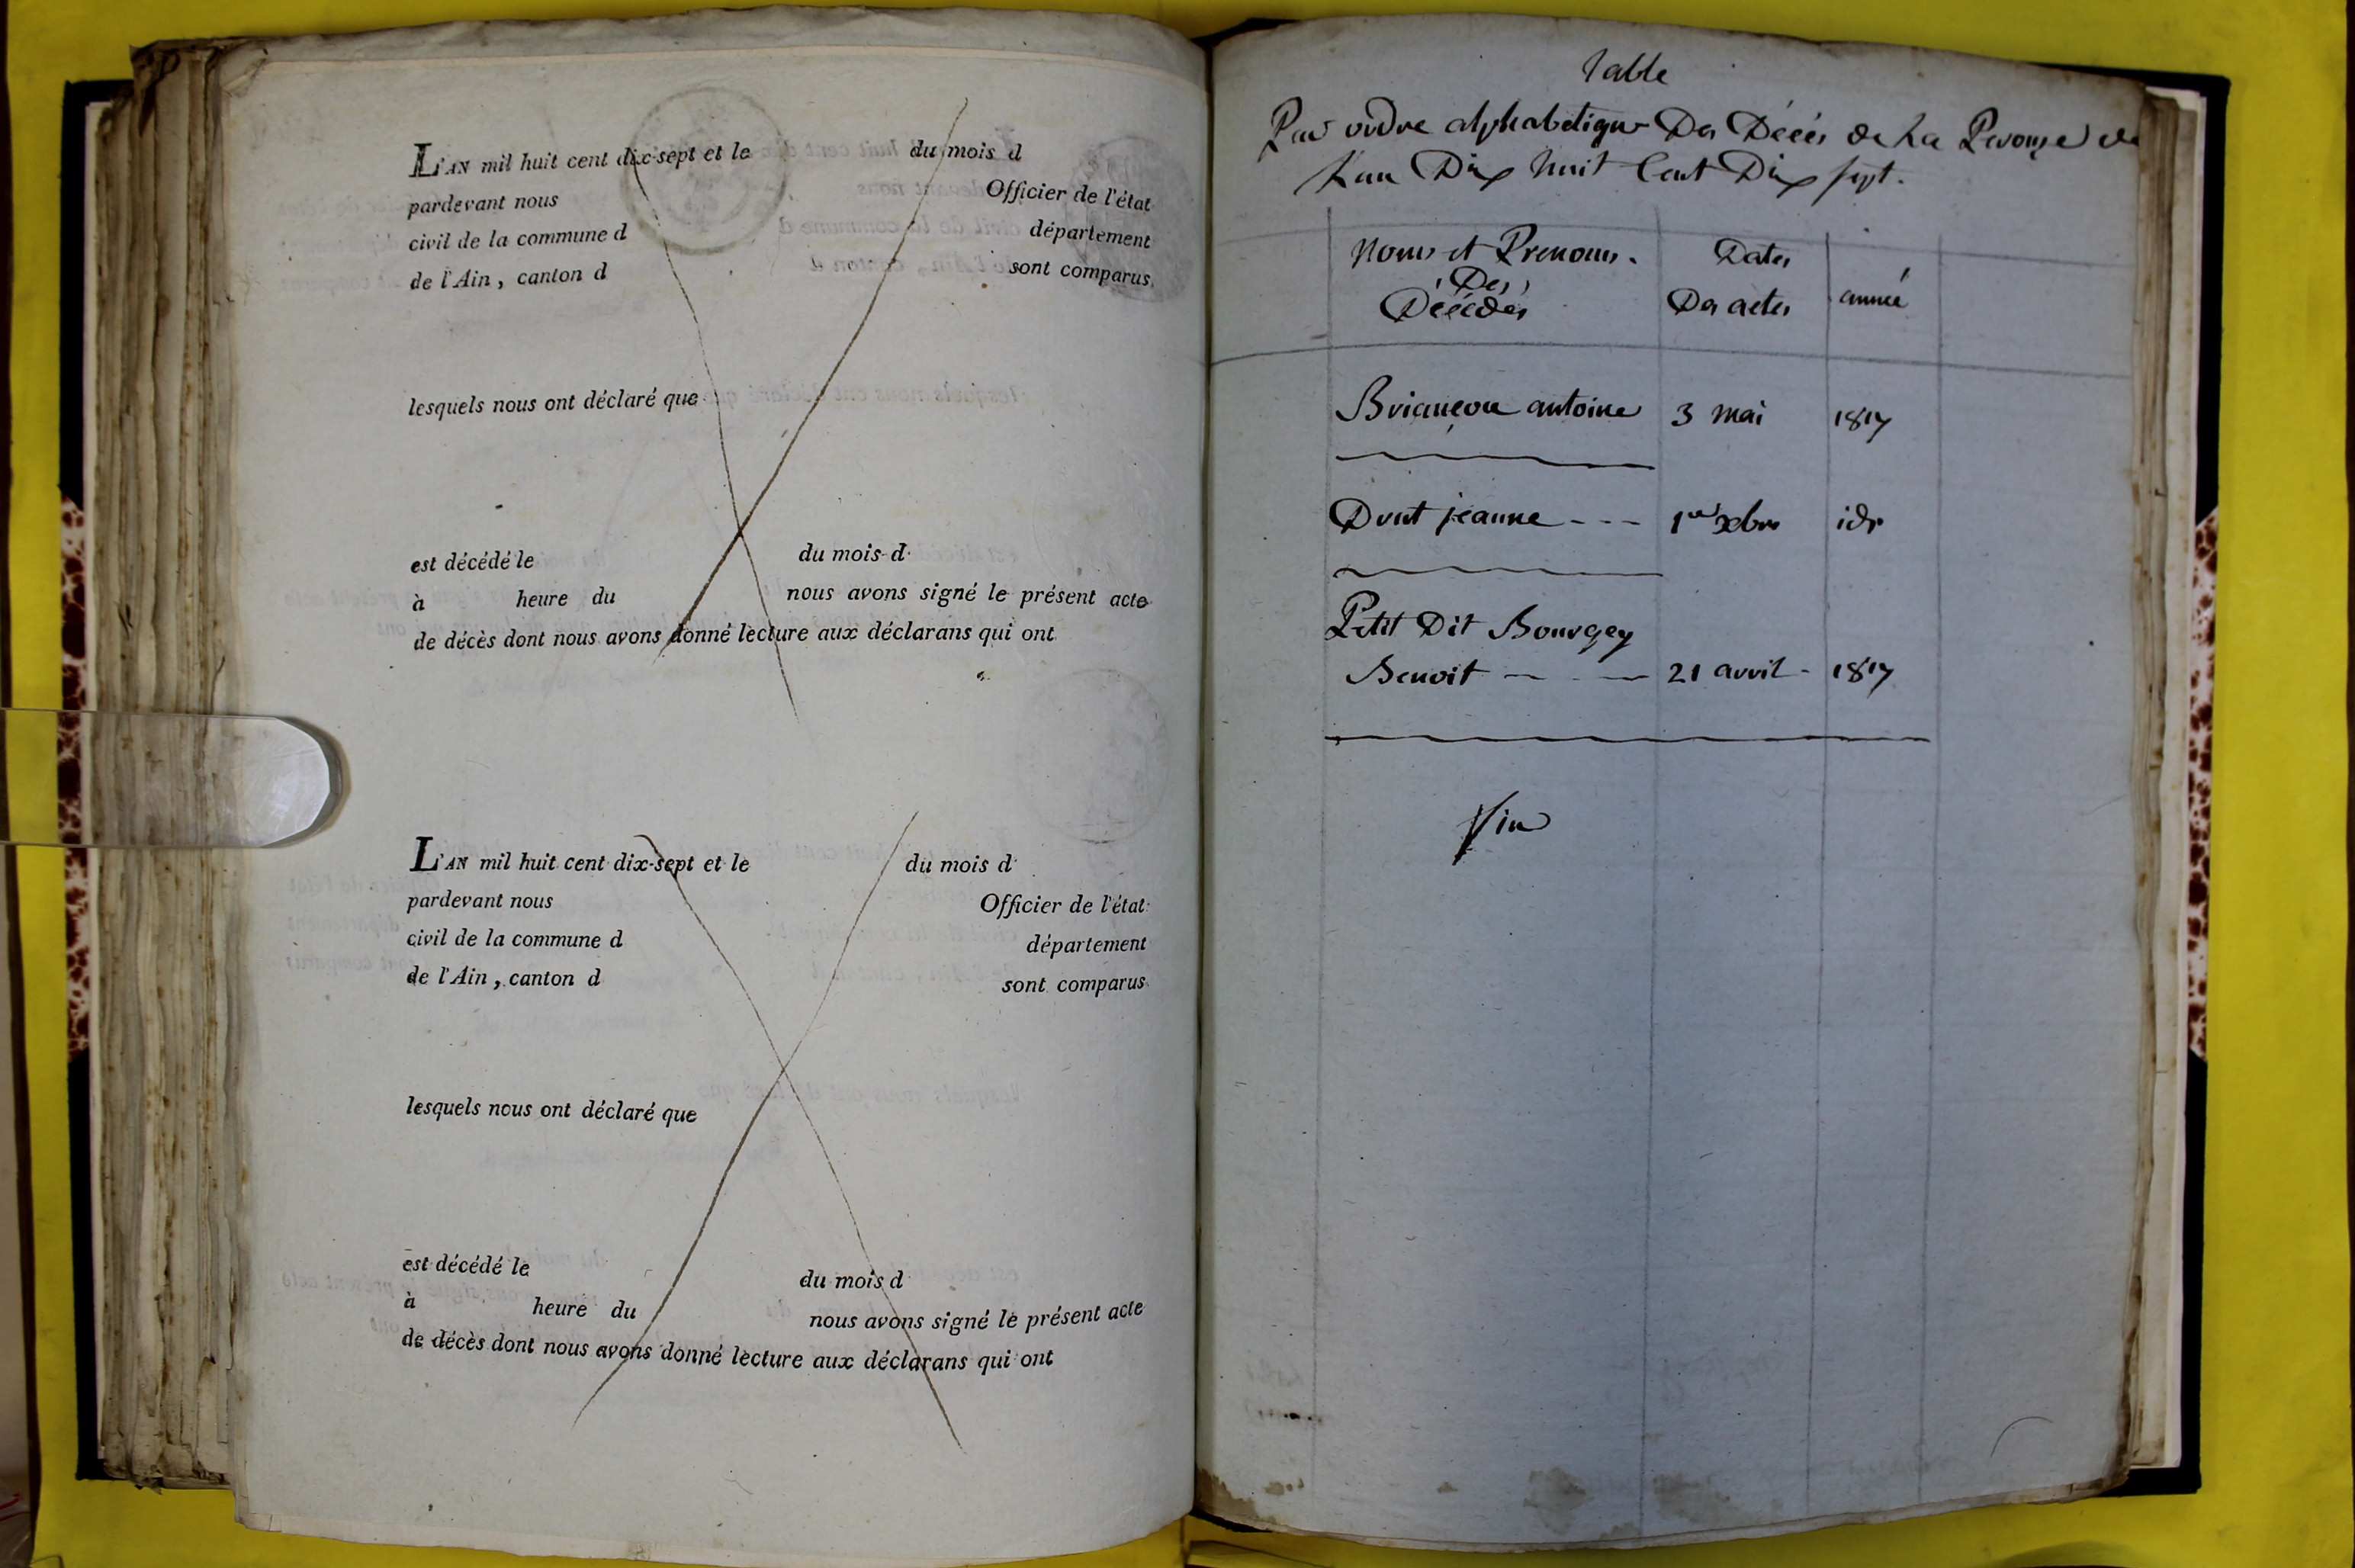 L'AN mil huit cent dix-sept et le du mois d
pardevant nous Officier de l'état
civil de la commune d département
de l'Ain, canton d sont comparus
lesquels nous ont déclaré que
est décédé le du mois d
à heure du nous avons signé le présent acte
de décès dont nous avons donné lecture aux déclarans qui ont
L'AN mil huit cent dix-sept et le du mois d
pardevant nous Officier de l'état
civil de la commune d département
de l'Ain, canton d sont comparus
lesquels nous ont déclaré que
est décédé le du mois d
à heure du nous avons signé le présent acte
de décès dont nous avons donné lecture aux déclarans qui ont
Table
Par ordre alphabetique Des Décés de La Perouze de
L'an Dix huit Cent Dix sept.
Noms et Prenoms. Dates
Des
Décédés Des actes année
Briançon antoine 3 mai 1817
Drut jeanne --- 1er xbre idr
Petit Dit Bourgey
Benoit 21 avril 1817
fin